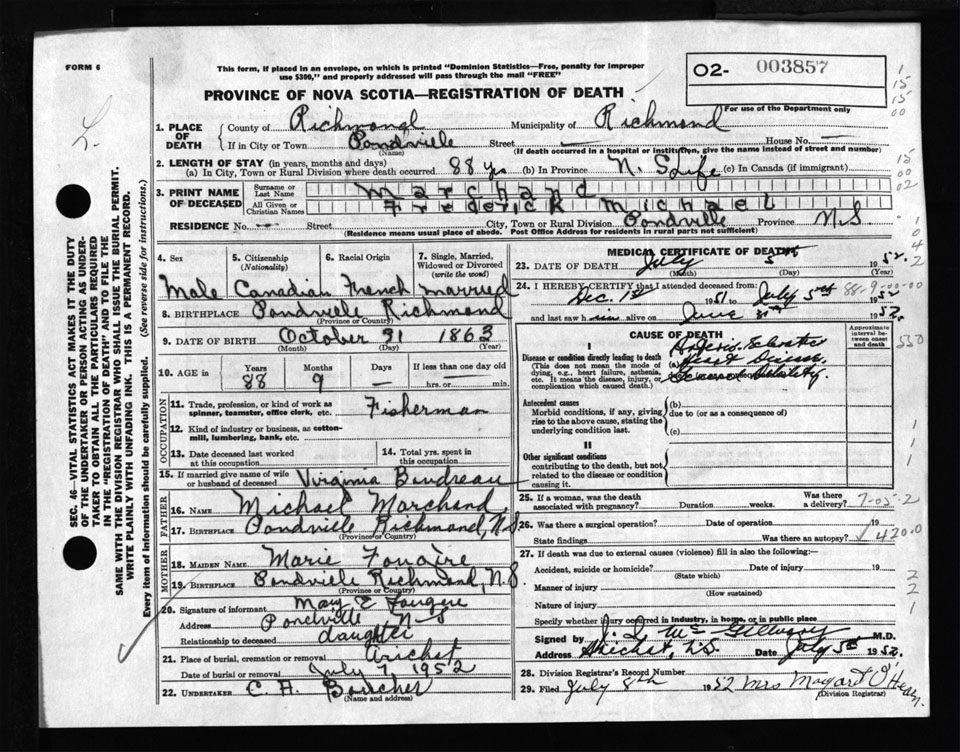 FORM 6
This form, if placed in an envelope, on which is printed "Dominion Statistics—Free, penalty for improper
use $300," and properly addressed will pass through the mail "FREE"
PROVINCE OF NOVA SCOTIA—REGISTRATION OF DEATH
O2- 003857
For use of the Department only
1. PLACE OF DEATH
County of Richmond Municipality of Richmond
If in City or Town Pondville Street — House No. —
(Name) (If death occurred in a hospital or institution, give the name instead of street and number)
2. LENGTH OF STAY (in years, months and days)
(a) In City, Town or Rural Division where death occurred 88 yrs (b) In Province N. S Life (c) In Canada (if immigrant)
3. PRINT NAME OF DECEASED
Surname or Last Name Marchand
All Given or Christian Names Frederick Michael
RESIDENCE No. — Street City, Town or Rural Division Pondville Province N.S.
(Residence means usual place of abode. Post Office Address for residents in rural parts not sufficient)
4. Sex Male
5. Citizenship (Nationality) Canadian
6. Racial Origin French
7. Single, Married, Widowed or Divorced (write the word) married
8. BIRTHPLACE Pondville Richmond
(Province or Country)
9. DATE OF BIRTH October 31 1863
(Month) (Day) (Year)
10. AGE in Years 88 Months 9 Days — If less than one day old
hrs. or min.
OCCUPATION
11. Trade, profession, or kind of work as spinner, teamster, office clerk, etc. Fisherman
12. Kind of industry or business, as cotton-mill, lumbering, bank, etc.
13. Date deceased last worked at this occupation
14. Total yrs. spent in this occupation
15. If married give name of wife or husband of deceased Virginia Boudreau
FATHER
16. Name Michael Marchand
17. Birthplace Pondville Richmond, N.S
(Province or Country)
MOTHER
18. MAIDEN NAME Marie
19. BIRTHPLACE Pondville Richmond, N.S
(Province or Country)
20. Signature of informant Mary E Fougere
Address Pondville N-S
Relationship to deceased daughter
21. Place of burial, cremation or removal Arichat
Date of burial or removal July 7, 1952
22. UNDERTAKER C. H. Boucher
(Name and address)
MEDICAL CERTIFICATE OF DEATH
23. DATE OF DEATH July 5 1952
(Month) (Day) (Year)
24. I HEREBY CERTIFY that I attended deceased from:
Dec. 1st 1951 to July 5th 1952
and last saw h im alive on June 1952.
88-9-00-00
CAUSE OF DEATH
Approximate interval between onset and death
I
Disease or condition directly leading to death
(This does not mean the mode of dying, e.g., heart failure, asthenia, etc. It means the disease, injury, or complication which caused death.)
Heart Disease
Debility.
Antecedent causes
Morbid conditions, if any, giving rise to the above cause, stating the underlying condition last.
(b)
due to (or as a consequence of)
(c)
II
Other significant conditions
contributing to the death, but not related to the disease or condition causing it.
25. If a woman, was the death associated with pregnancy? Duration weeks. Was there a delivery?
7-05-2
26. Was there a surgical operation? Date of operation 19
State findings Was there an autopsy?
420.0
27. If death was due to external causes (violence) fill in also the following:—
Accident, suicide or homicide? Date of injury 19
(State which)
Manner of injury
(How sustained)
Nature of injury
Specify whether injury occurred in industry, in home, or in public place
Signed by M.D.
Address Arichat, N.S. Date July 5th 1952.
28. Division Registrar's Record Number
29. Filed July 8th 1952 Mrs Margaret O'Hearn.
(Division Registrar)
SEC. 46—VITAL STATISTICS ACT MAKES IT THE DUTY
OF THE UNDERTAKER OR PERSON ACTING AS UNDER-
TAKER TO OBTAIN ALL THE PARTICULARS REQUIRED
IN THE "REGISTRATION OF DEATH" AND TO FILE THE
SAME WITH THE DIVISION REGISTRAR WHO SHALL ISSUE THE BURIAL PERMIT.
WRITE PLAINLY WITH UNFADING INK. THIS IS A PERMANENT RECORD.
Every item of information should be carefully supplied. (See reverse side for instructions.)